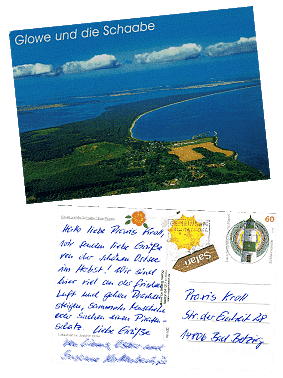 Glowe und die Schaabe
Hallo liebe Praxis Kroll,
wir senden liebe Grüße
von der schönen Ostsee
im Herbst! Wir sind
hier viel an der frischen
Luft und gehen Drachen
steigen, sammeln Muscheln
oder suchen einen Piraten-
schatz. Liebe Grüße
von und
Susanne
60
Safari
Praxis Kroll
Str. der Einheit
14806 Bad Belzig